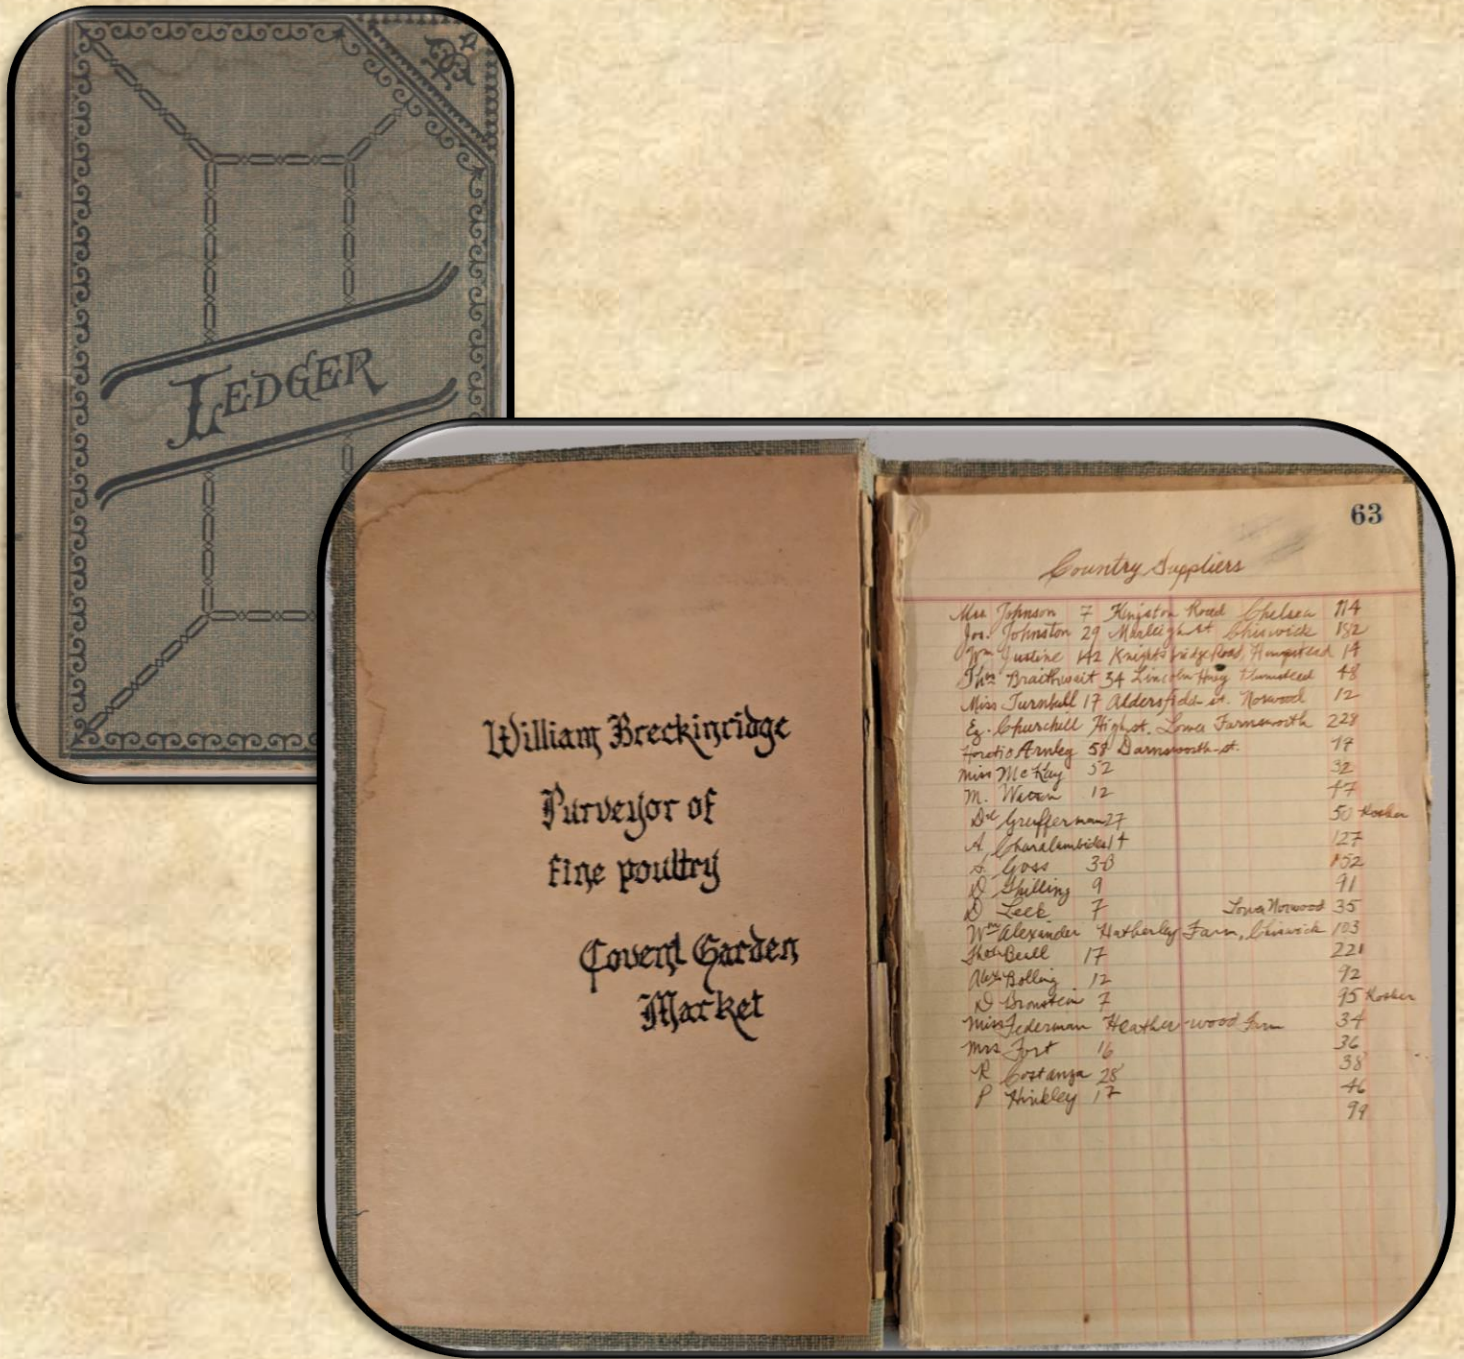 LEDGER
William Breckinridge
Purveyor of
fine poultry
Covent Garden
Market
63
Country Suppliers
Mrs Johnson 7 Kingston Road Chelsea 114
Jos. Johnston 29 Chiswick 182
Wm Justine 142 Knightsbridge Road, 14
Thos Braithwait 54 Lincoln 48
Miss Turnbull 17 Aldersfield st. Norwood 12
Ez. Churchill High st. Lower Farnsworth 228
Horatio Arnley 58 Darnsworth st. 17
Miss McKay 52 32
M. 12 47
27 50 Kosher
A. 14 127
Goss 38 152
D 9 91
D Leck 7 Lower Norwood 35
Wm Alexander Hatherley Farm, Chiswick 103
17 221
Alex Bolling 12 92
D Bronstein 7 95 Kosher
Miss Federman Heather-wood Farm 34
Mrs Fort 16 36
R Costanza 28 38
P Hinkley 17 46
99